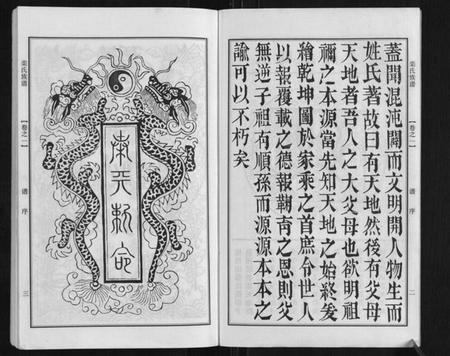 蓋聞混沌開而文明開人物生而
姓氏著故曰有天地然後有父母
天地者吾人之大父母也欲明祖
禰之本源當先知天地之始終爰
繪乾坤圖於家乘之首庶令世人
以報覆載之德報鞠育之恩則父
無逆子祖有順孫而源源本本之
諭可以不朽矣
栾氏族譜
卷之一
譜序
二
奉天勅命
栾氏族譜
卷之一
譜序
三